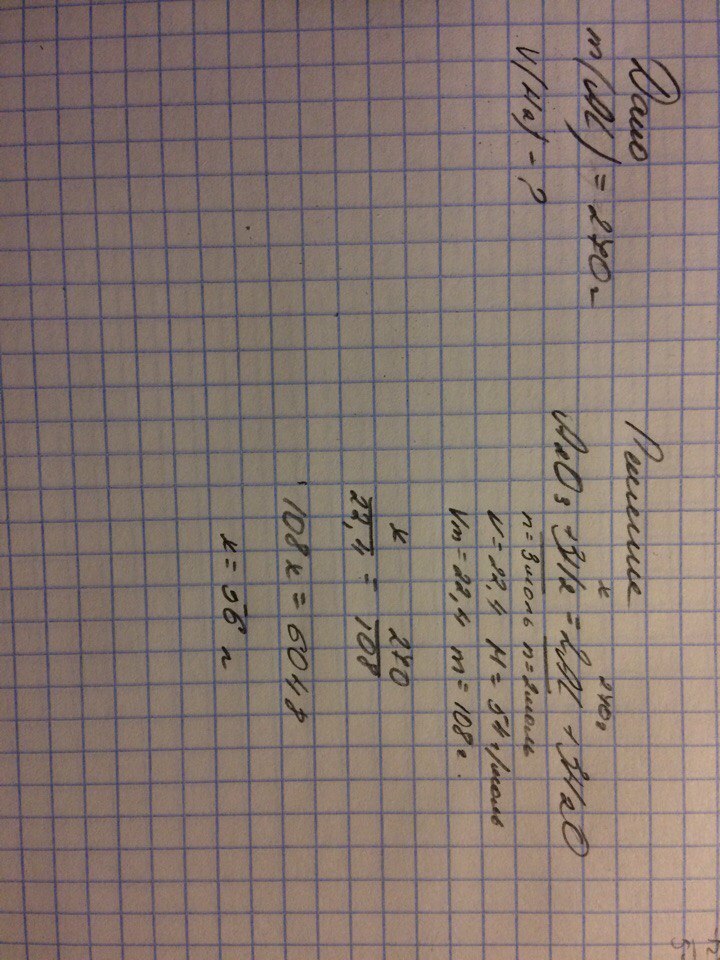 Дано
m(Al) = 270г
V(H2) - ?
Решение
x 270г
Al2O3 + 3H2 = 2Al + 3H2O
n = 3моль n = 2моль
V = 22,4 M = 54 г/моль
Vm = 22,4 m = 108 г.
x 270
22,4 = 108
108x = 6048
x = 56 г